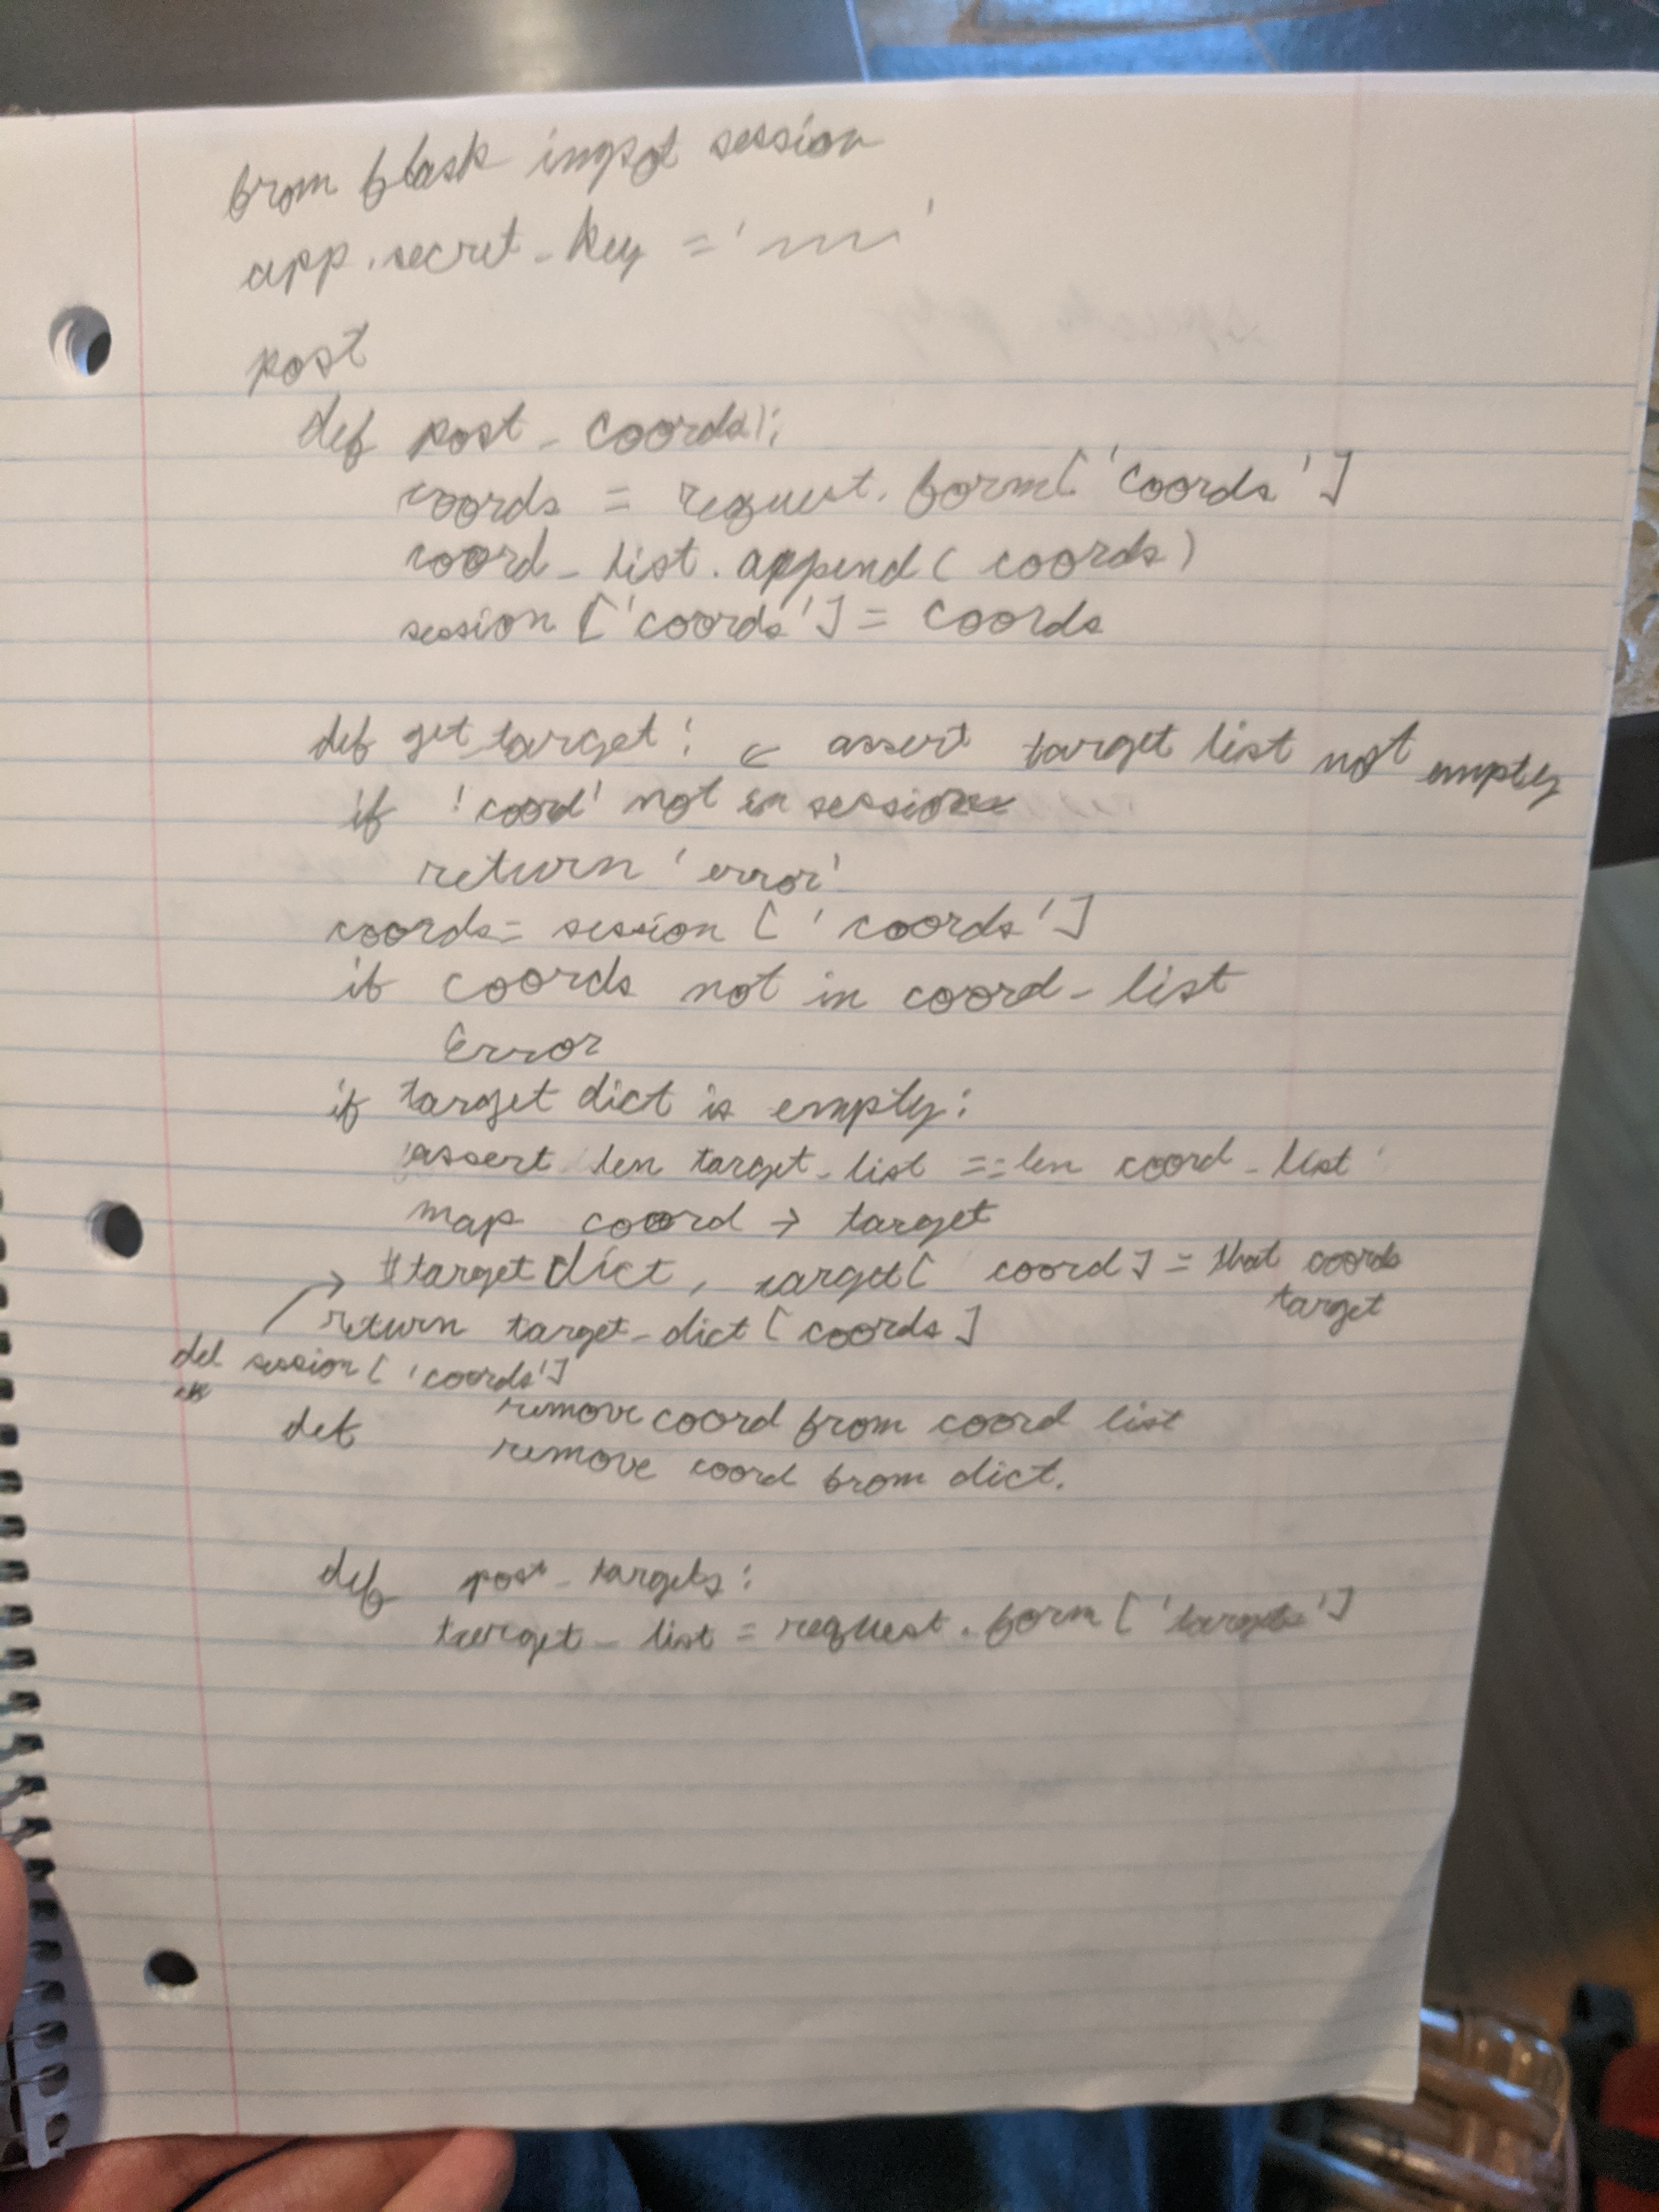 from flask import session
app.secret_key = ' '
post
def post_coords():
coords = request.form['coords']
coord_list.append(coords)
session['coords'] = coords
def get_target: ← assert target list not empty
if 'coord' not in session
return 'error'
coords = session['coords']
if coords not in coord_list
Error
if target dict is empty:
assert len target_list == len coord_list
map coord → target
#target dict, target[coord] = that coords
target
→ return target_dict[coords]
del session['coords']
def remove coord from coord list
remove coord from dict.
def post_targets:
target_list = request.form['targets']